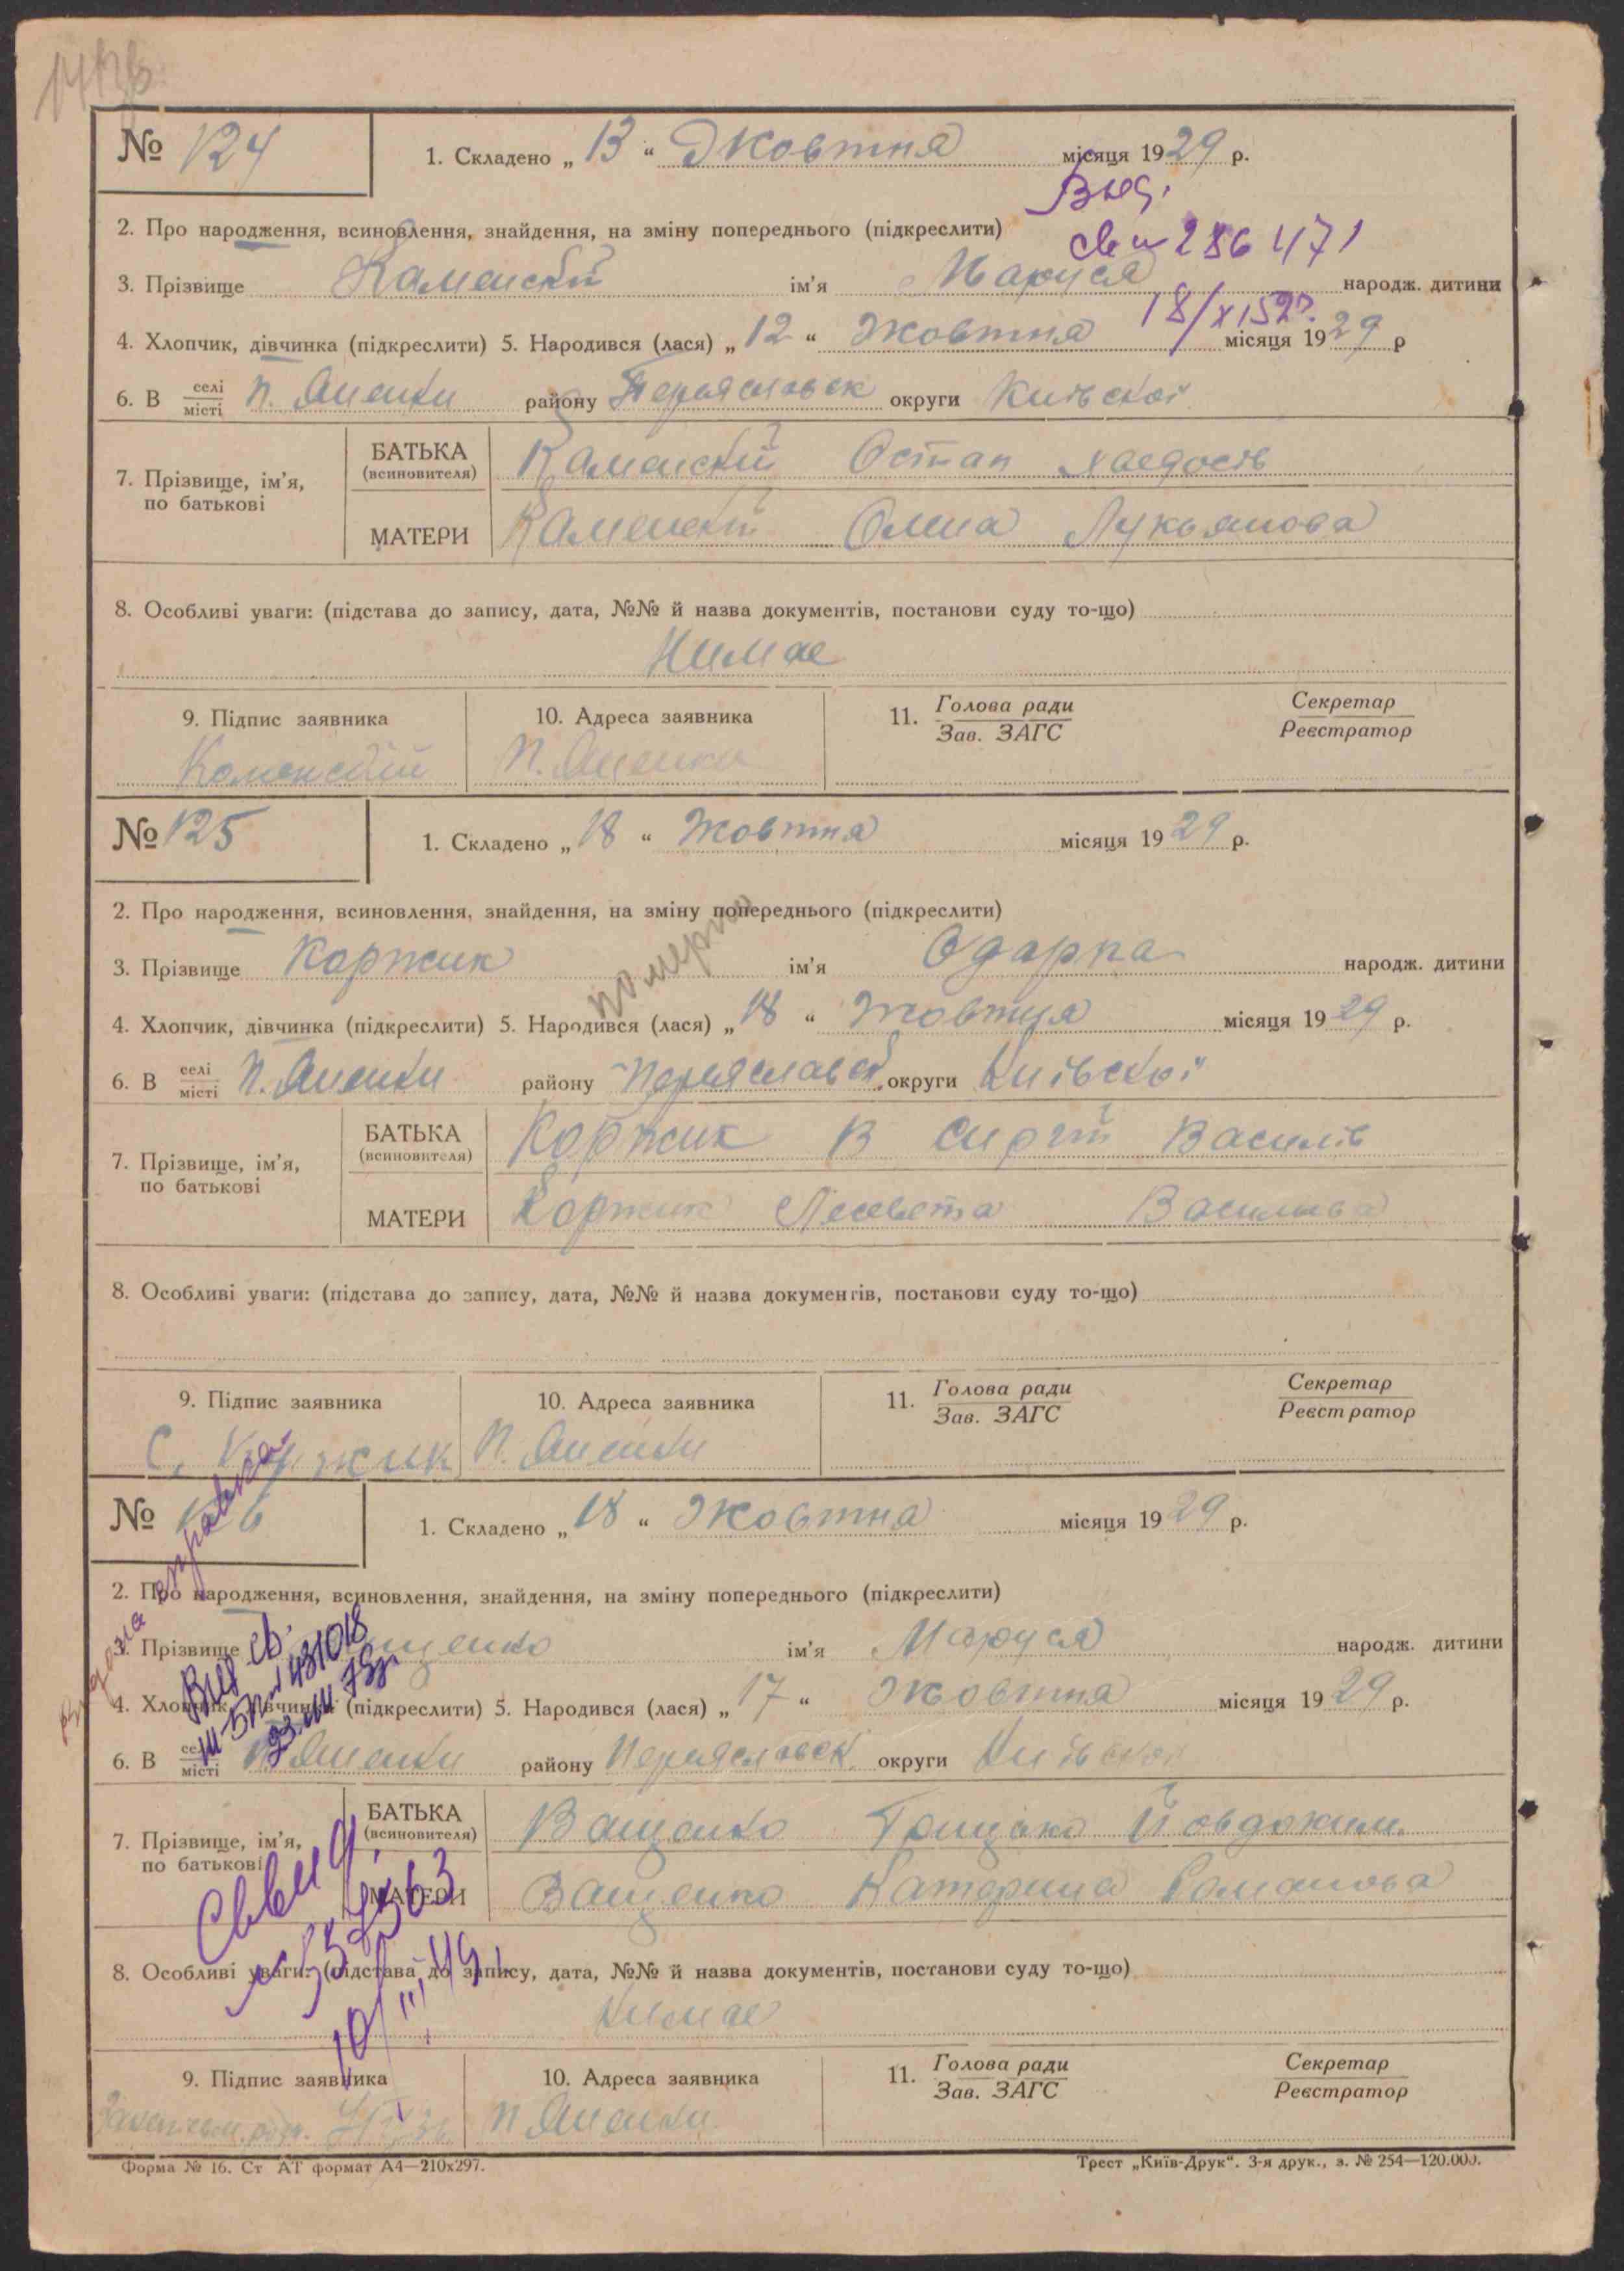 № 124
1. Складено „ 13 “ Жовтня місяця 1929 р.
2. Про народження, всиновлення, знайдення, на зміну попереднього (підкреслити)
св № 286471
3. Прізвище Каменскій ім'я Маруся народж. дитини
18/X 52р.
4. Хлопчик, дівчинка (підкреслити) 5. Народився (лася) „ 12 “ Жовтня місяця 1929 р
6. В селі місті району Переяславск округи Київскої
7. Прізвище, ім'я, по батькові
БАТЬКА (всиновителя) Каменскій Остап
МАТЕРИ Каменскій Олена Лукьянова
8. Особливі уваги: (підстава до запису, дата, №№ й назва документів, постанови суду то-що)
Нимае
9. Підпис заявника 10. Адреса заявника 11. Голова ради Зав. ЗАГС Секретар Реєстратор
Каменскій
№ 125
1. Складено „ 18 “ Жовтня місяця 1929 р.
2. Про народження, всиновлення, знайдення, на зміну попереднього (підкреслити)
3. Прізвище Коржик ім'я Одарка народж. дитини
4. Хлопчик, дівчинка (підкреслити) 5. Народився (лася) „ 18 “ Жовтня місяця 1929 р.
6. В селі місті району Переяславск округи Київскої
7. Прізвище, ім'я, по батькові
БАТЬКА (всиновителя) Коржик В Сиргій Василів
МАТЕРИ Коржик Василива
8. Особливі уваги: (підстава до запису, дата, №№ й назва документів, постанови суду то-що)
9. Підпис заявника 10. Адреса заявника 11. Голова ради Зав. ЗАГС Секретар Реєстратор
С. Коржик
№ 126
1. Складено „ 18 “ Жовтня місяця 1929 р.
2. Про народження, всиновлення, знайдення, на зміну попереднього (підкреслити)
3. Прізвище Ващенко ім'я Маруся народж. дитини
4. Хлопчик, дівчинка (підкреслити) 5. Народився (лася) „ 17 “ Жовтня місяця 1929 р.
6. В селі місті району Переяславск округи Київскої
7. Прізвище, ім'я, по батькові
БАТЬКА (всиновителя) Ващенко Грицько Йовдоким.
МАТЕРИ Ващенко Катерина Романова
8. Особливі уваги: (підстава до запису, дата, №№ й назва документів, постанови суду то-що)
Нимае
9. Підпис заявника 10. Адреса заявника 11. Голова ради Зав. ЗАГС Секретар Реєстратор
Форма № 16. Ст АТ формат А4—210х297. Трест „Київ-Друк“. 3-я друк., з. № 254—120.000.